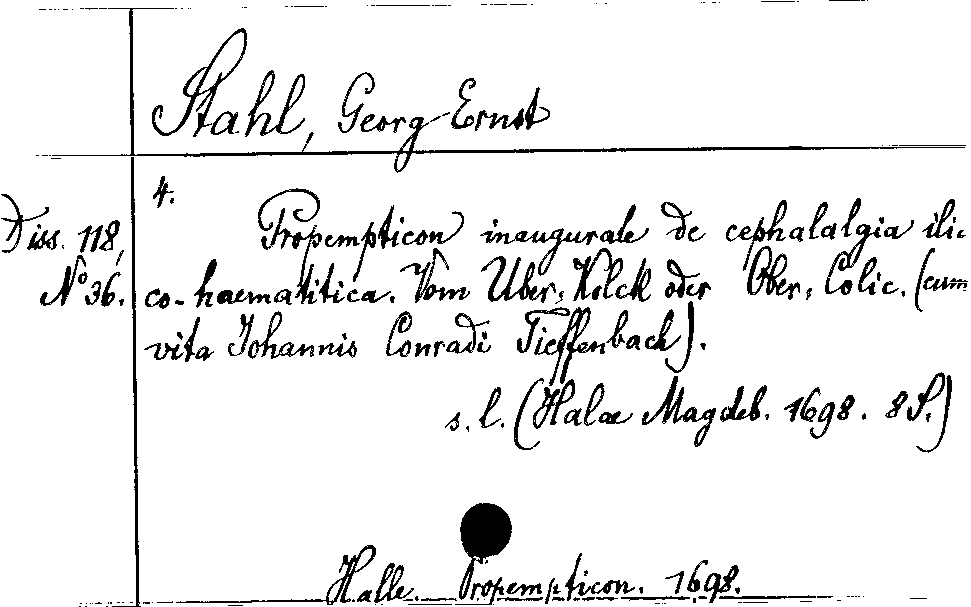 Stahl, Georg Ernst
4.
Diss. 118,
Nº 36.
Propempticon inaugurale de cephalalgia ilia-
co-haematitica. Vom Uber-Kolck oder Ober-Colic. (cum
vita Johannis Conradi Tieffenbach).
s. l. (Halae Magdeb. 1698. 8 S.)
Halle. Propempticon. 1698.